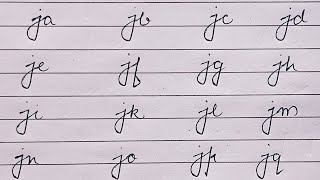 ja jb jc jd
je jf jg jh
ji jk jl jm
jn jo jp jq